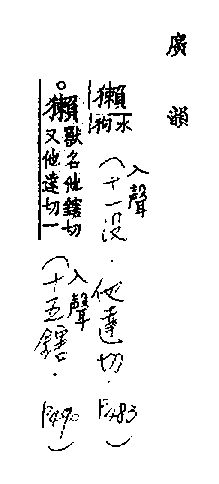 廣瀨
獺 水狗 (入聲 十一沒．他達切．P483)
獺 獸名他鎋切又他達切一 (入聲 十五鎋．P490)